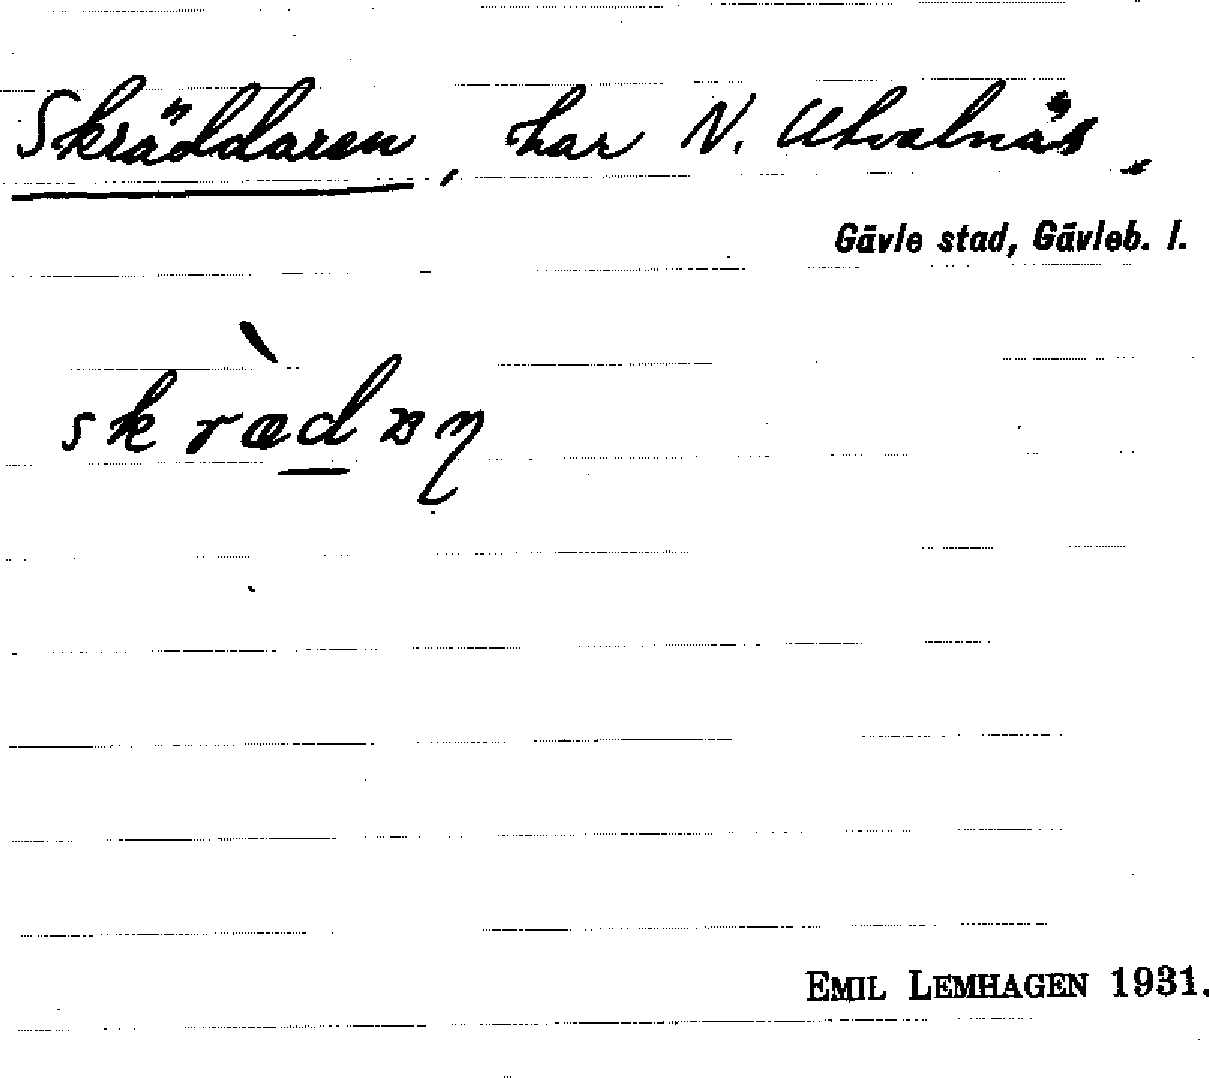 Skräddaren, har N. Utvalnäs.
Gävle stad, Gävleb. l.
EMIL LEMHAGEN 1931.